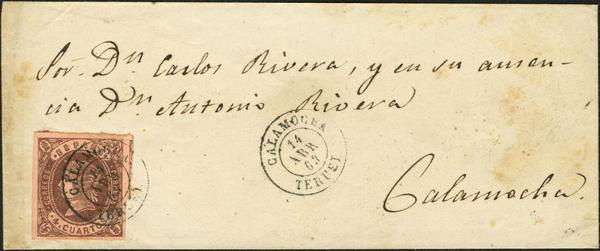 Sor. Dn. Carlos Rivera, y en su ausen-
cia Dn. Antonio Rivera
CALAMOCHA
14
ABR
63
TERUEL
CALAMOCHA
TERUEL
4 CUARTOS
Calamocha.